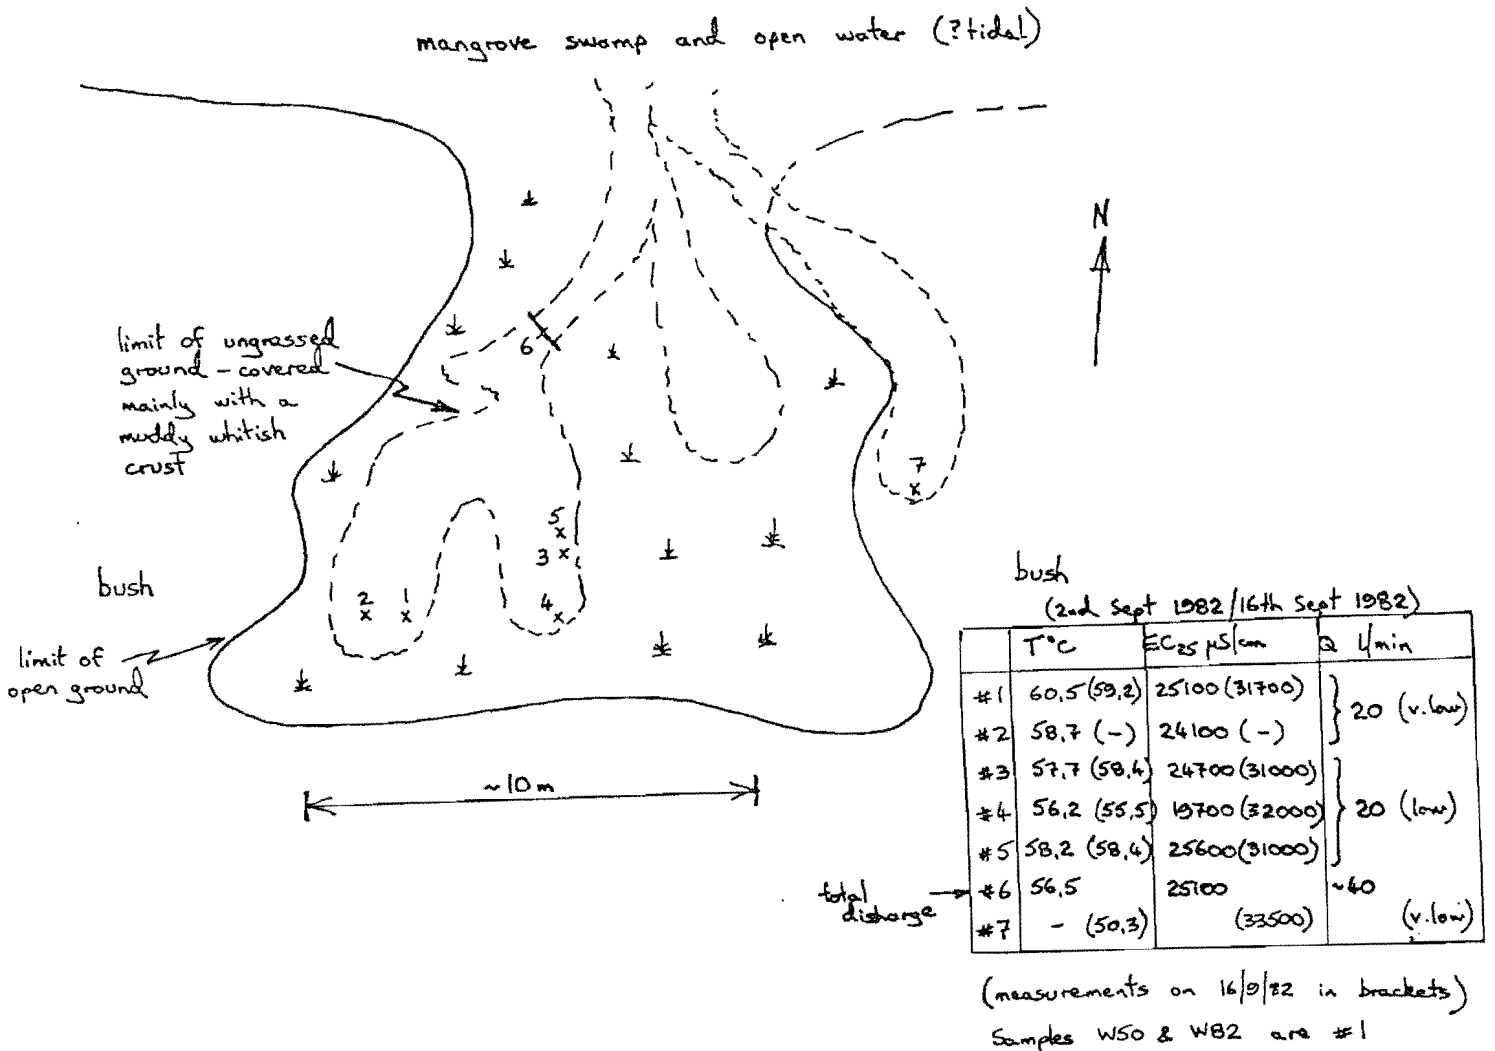 mangrove swamp and open water (?tidal)
N
limit of ungrassed
ground - covered
mainly with a
muddy whitish
crust
6
7
5
3
4
2 1
bush
limit of
open ground
~10m
bush
(2nd Sept 1982/16th Sept 1982)
T°C EC25 µS/cm Q l/min
#1 60,5 (59,2) 25100 (31700)
20 (v.low)
#2 58,7 (-) 24100 (-)
#3 57,7 (58,4) 24700 (31000)
#4 56,2 (55,5) 19700 (32000) 20 (low)
#5 58,2 (58,4) 25600 (31000)
total
disharge
#6 56,5 25100 ~40
#7 - (50,3) (33500) (v.low)
(measurements on 16/9/82 in brackets)
Samples W50 & W82 are #1